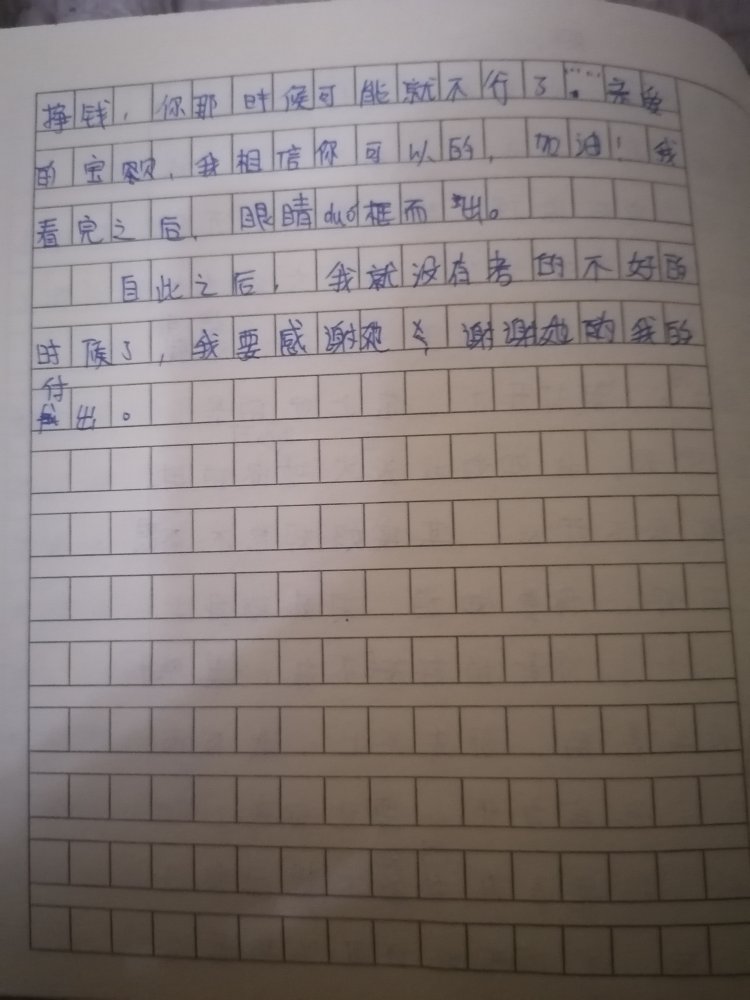 挣钱，你那时候可能就不行了。……亲爱
的宝贝，我相信你可以的，加油！我
看完之后，眼睛duó框而出。
自此之后，我就没有考的不好的
时候了，我要感谢她，谢谢她的我的
付出。